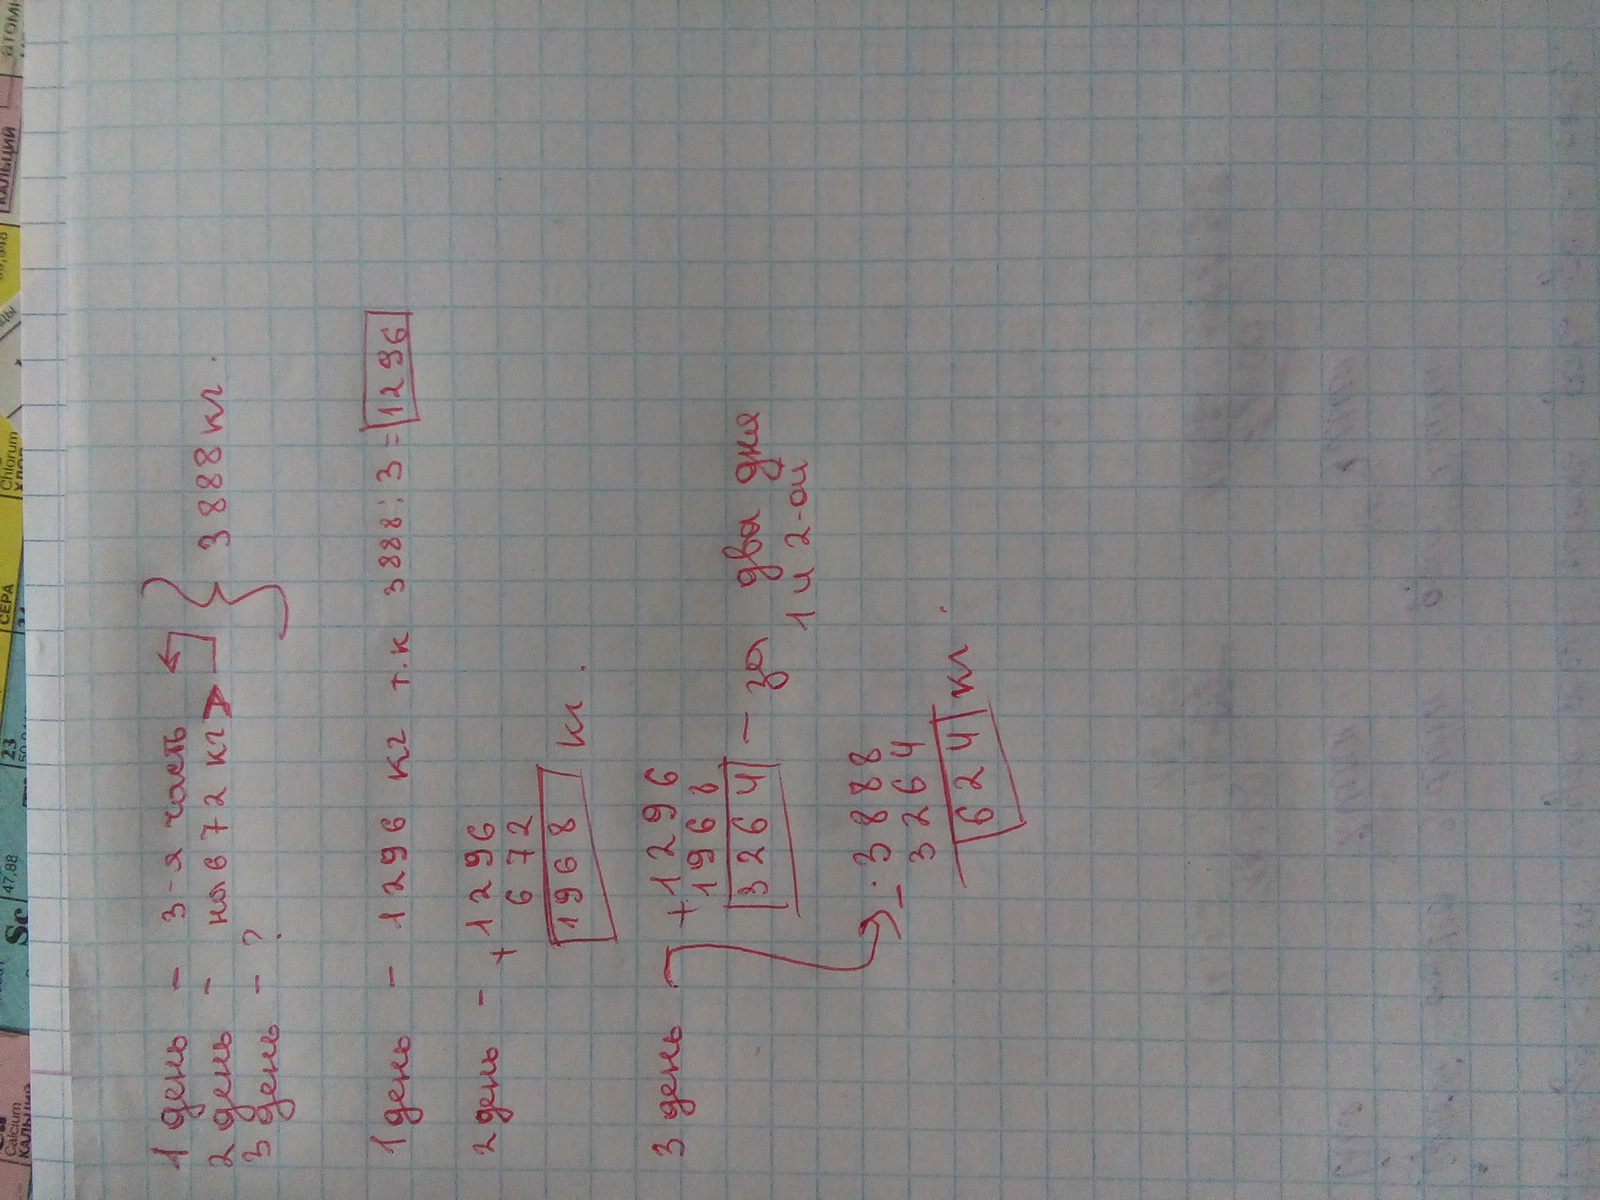 1 день - 3-я часть
2 день - на 672 кг >
3 день - ?
3888 кг.
1 день - 1296 кг т.к 3888:3=1296
2 день - + 1296
672
1968 кг.
3 день + 1296
1968
3264 - за два дня
1 и 2-ой
- 3888
3264
624 кг.
Calcium
КАЛЬЦИЙ
Sc
47,88
23
СЕРА
Chlorum
КАЛЬЦИЙ